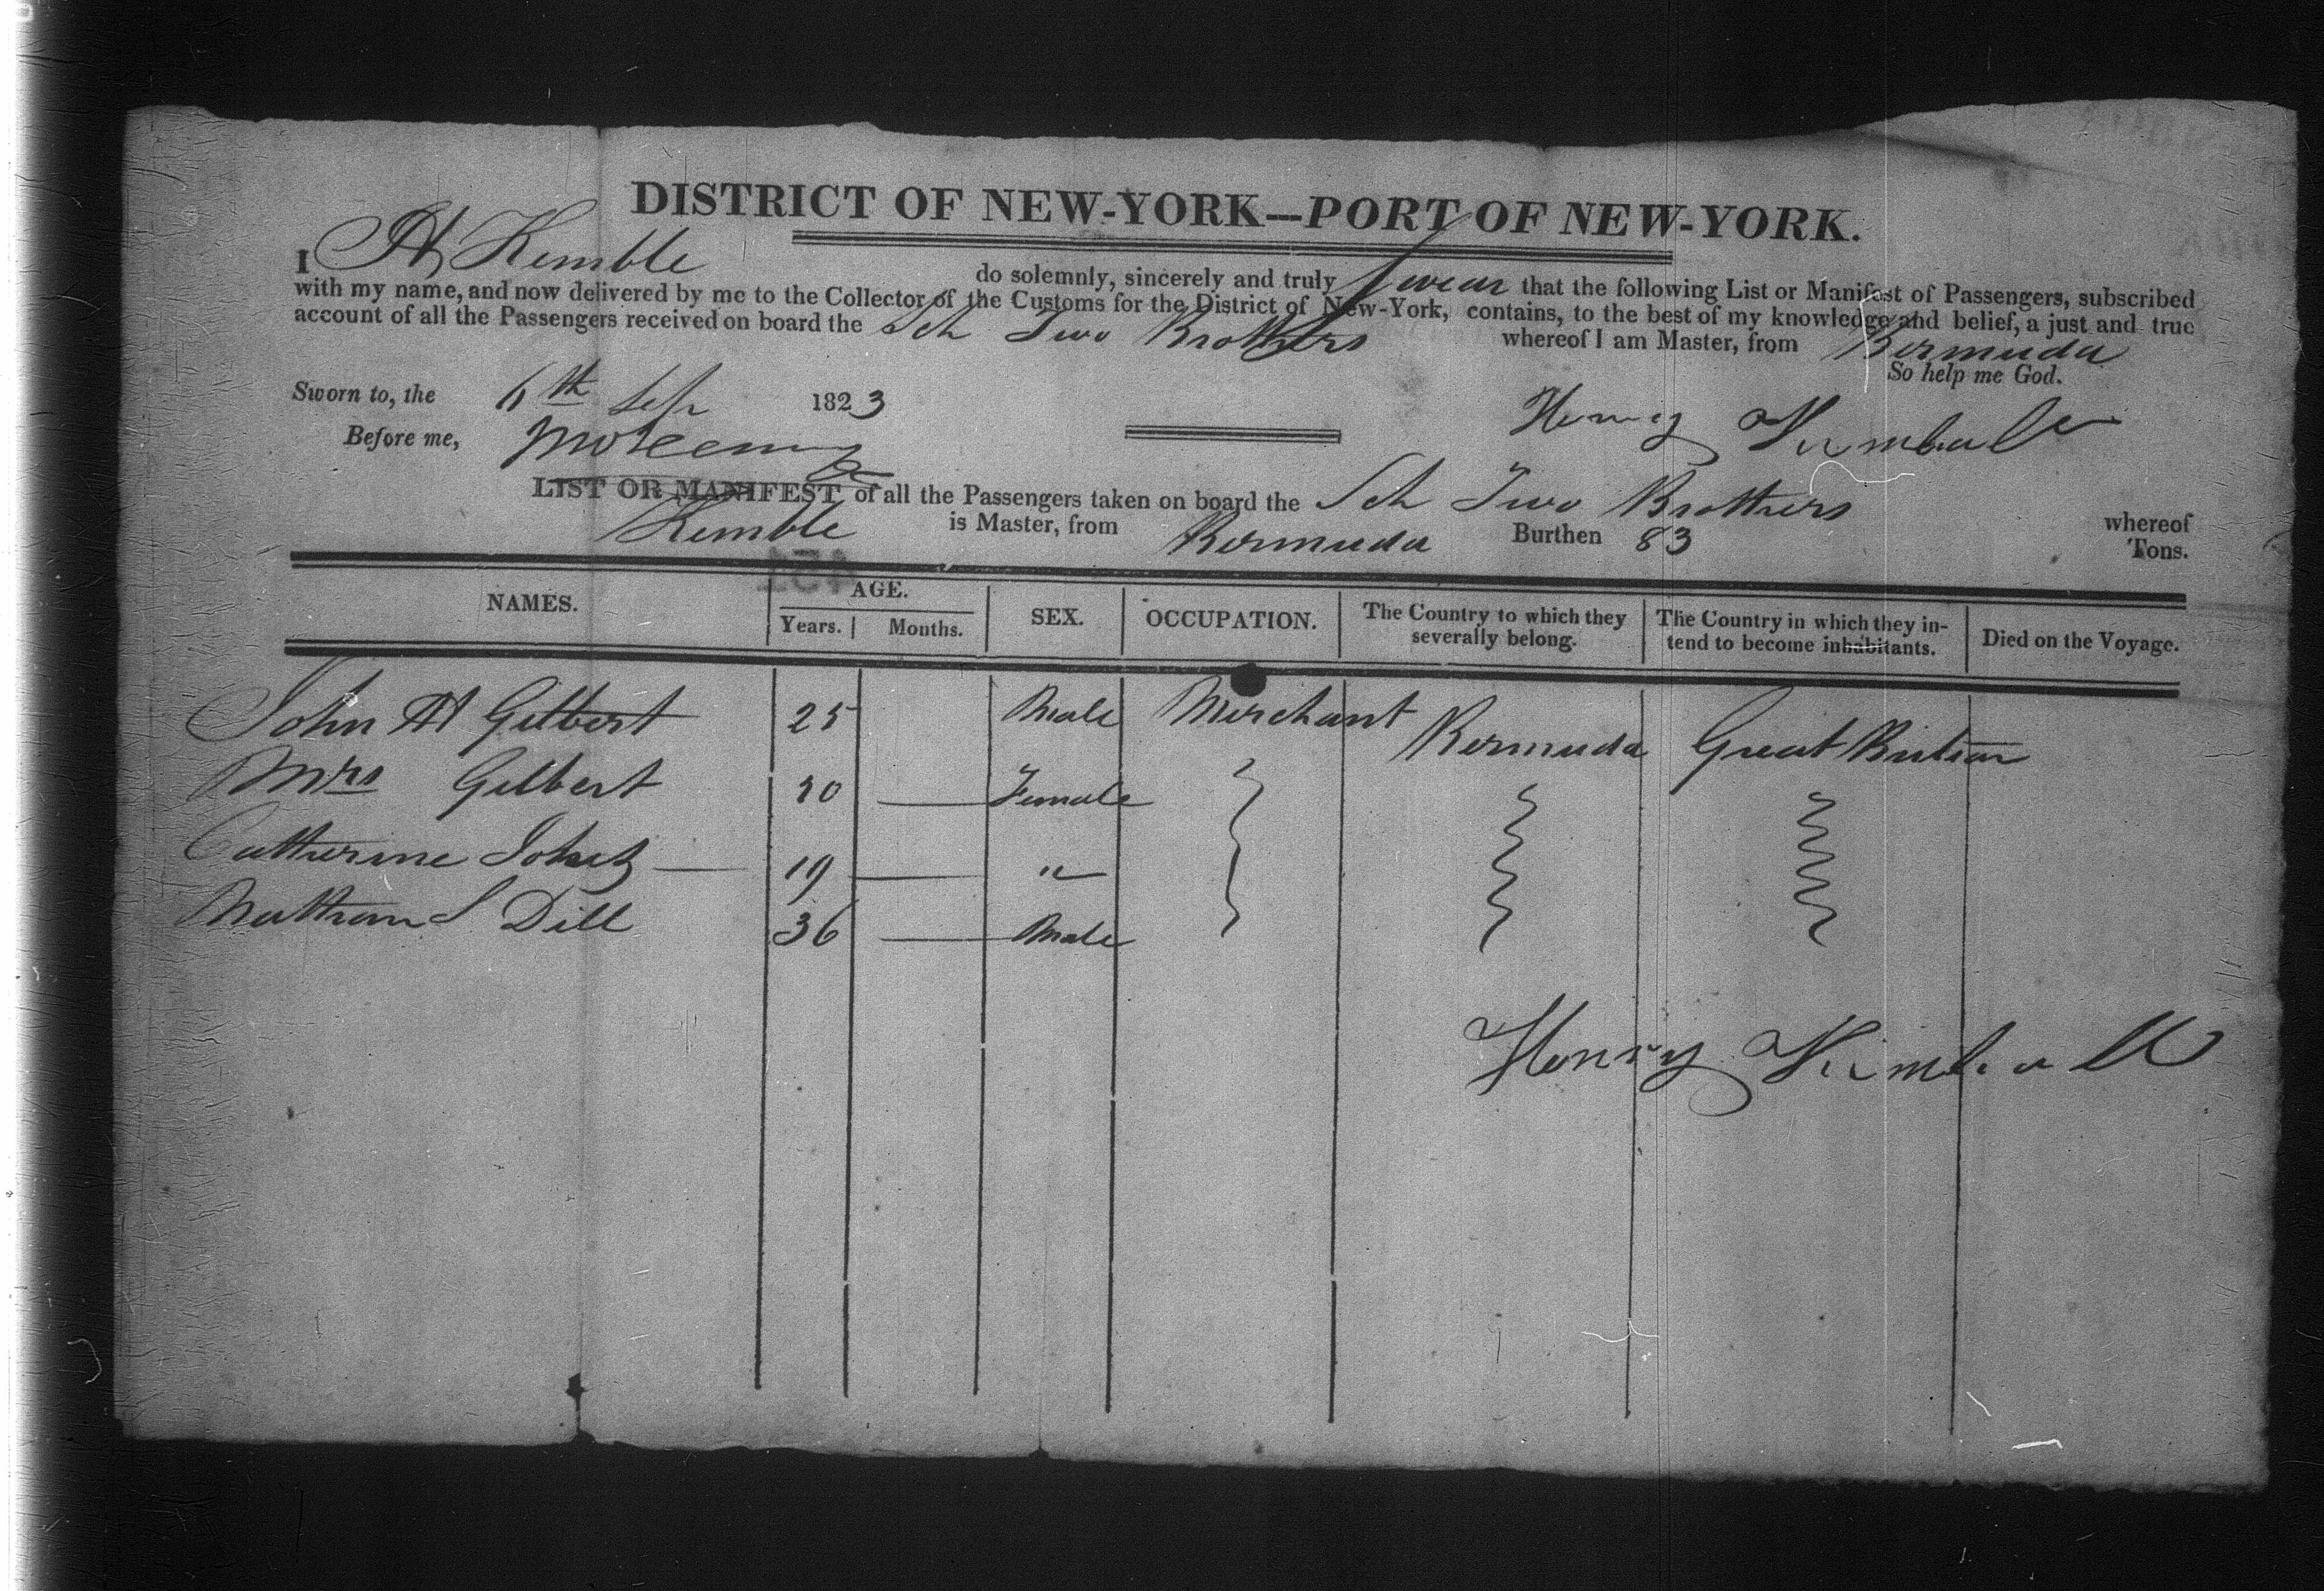 DISTRICT OF NEW-YORK—PORT OF NEW-YORK.
I H Kemble do solemnly, sincerely and truly swear that the following List or Manifest of Passengers, subscribed
with my name, and now delivered by me to the Collector of the Customs for the District of New-York, contains, to the best of my knowledge and belief, a just and true
account of all the Passengers received on board the Sch Two Brothers whereof I am Master, from Bermuda
So help me God.
Sworn to, the 6th Sep 1823
Henry Kimball
Before me,
LIST OR MANIFEST of all the Passengers taken on board the Sch Two Brothers whereof
Kemble is Master, from Bermuda Burthen 83 Tons.
NAMES. AGE. Years. Months. SEX. OCCUPATION. The Country to which they severally belong. The Country in which they intend to become inhabitants. Died on the Voyage.
John H Gilbert 25 Male Merchant Bermuda Great Britian
Mrs Gilbert Female
Catherine 19 "
Nathan S Dill 36 Male
Henry Kimball